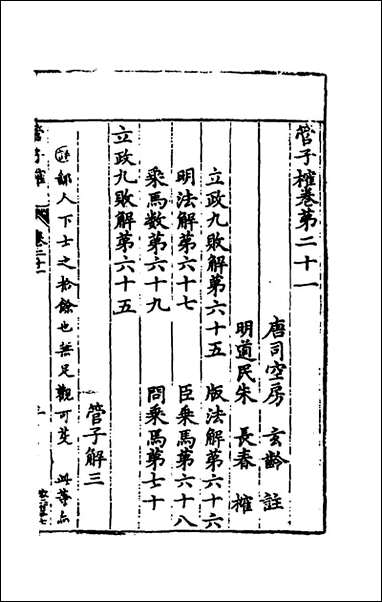 管子榷卷第二十一
唐司空房 玄齡 註
明道民朱 長春 榷
立政九敗解第六十五 版法解第六十六
明法解第六十七 臣乘馬第六十八
乘馬數第六十九 問乘馬第七十
立政九敗解第六十五
管子解三
評鄙人下士之拾餘也無足觀可芟 此等點
管子榷 卷二十一